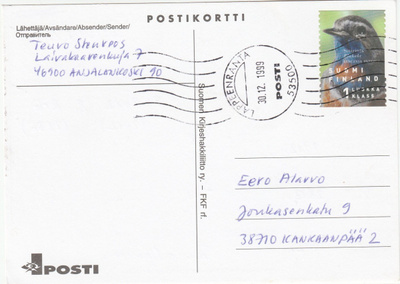 POSTIKORTTI
Lähettäjä/Avsändare/Absender/Sender/
Отправитель
Teuvo Stenroos
Laivakaarenkuja 7
46900 ANJALANKOSKI 90
LAPPEENRANTA
30.12.1999
POSTI
53500
SUOMI
FINLAND
1 LUOKKA
KLASS
Suomen Kirjeshakkiliitto ry. – FKF rf.
Eero Alarvo
Jonkasenkatu 9
38710 KANKAANPÄÄ 2
POSTI